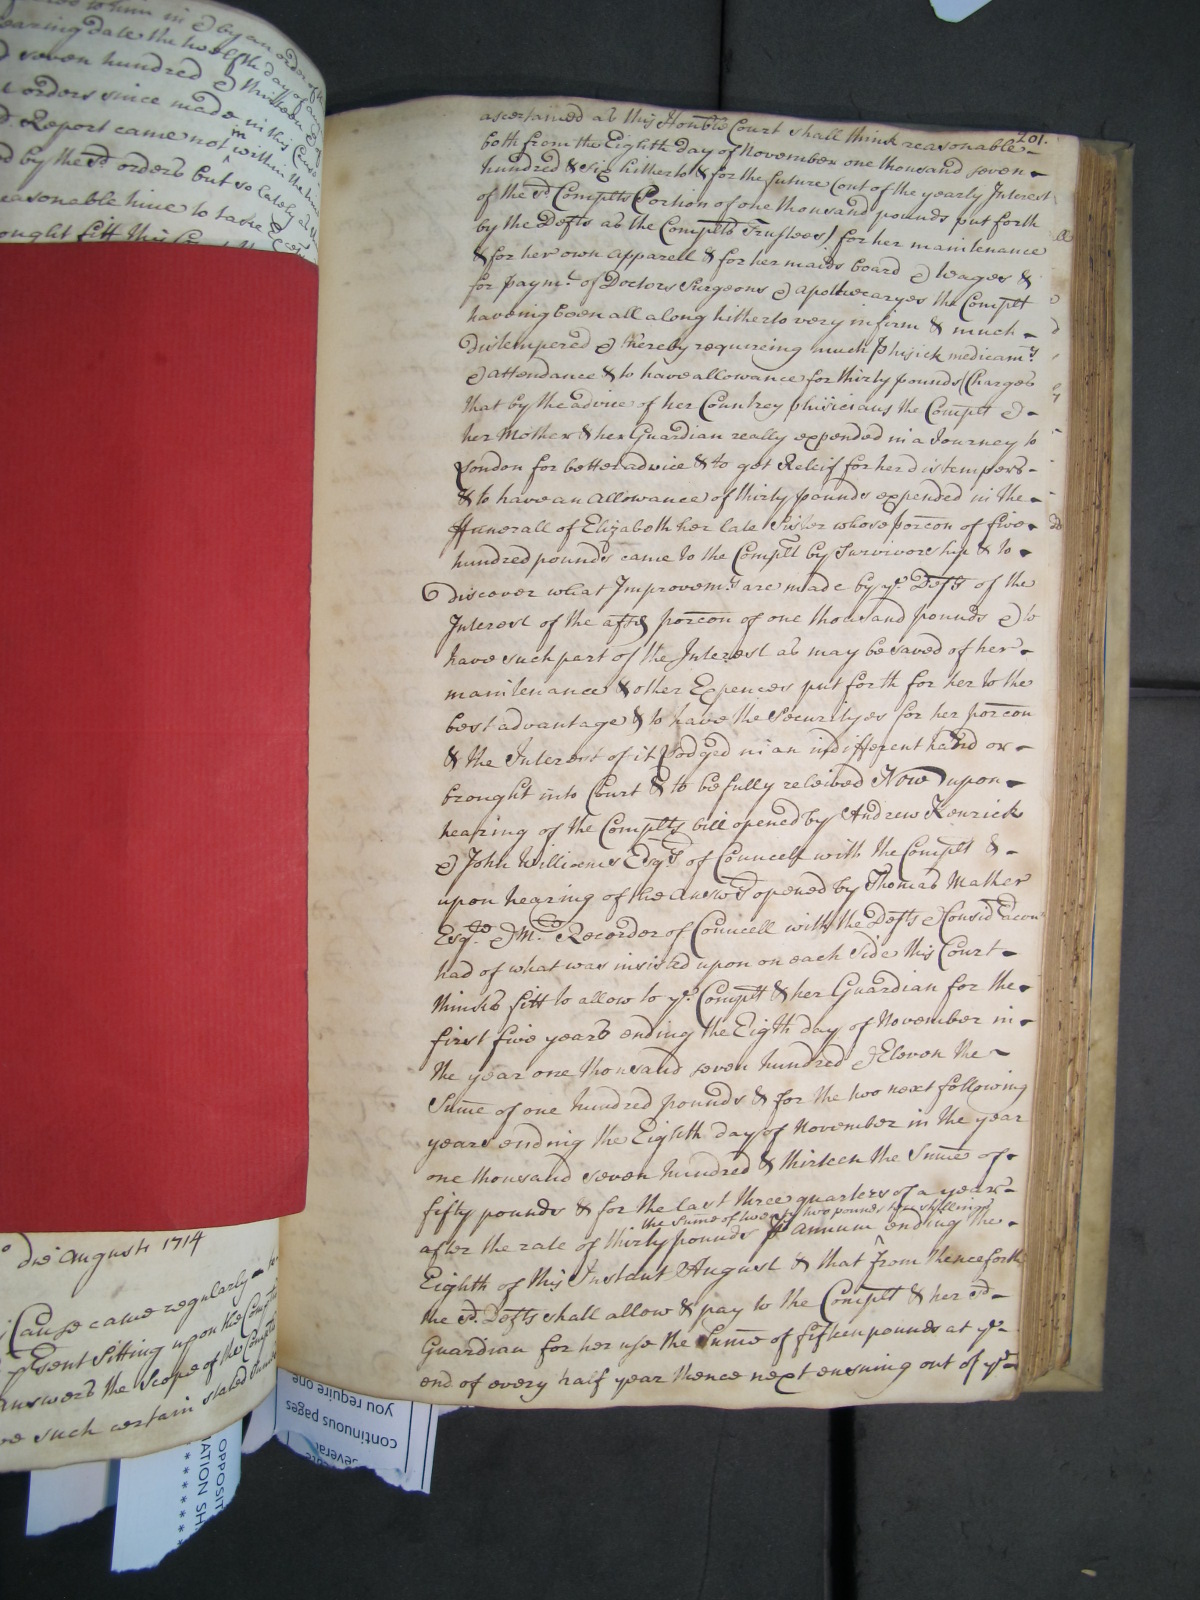 201.
ascertained as this Honble Court shall think reasonable
both from the Eighth day of November one thousand seven
hundred & six hitherto & for the future (out of the yearly Interest
of the sd Complts Portion of one thousand pounds put forth
by the Defts as the Complts Trustees) for her maintenance
& for her own apparell & for her maids board & wages &
for paymt. of Doctors Surgeons & apothecaryes the Complt
haveing been all along hitherto very infirm & much
distempered & thereby requireing much phisick medicamts
& attendance & to have allowance for thirty pounds Charges
that by the advice of her Countrey phisicians the Complt &
her Mother & her Guardian really expended in a Journey to
London for better advice & to get Releif for her distempers
& to have an Allowance of thirty pounds expended in the
ffunerall of Elizabeth her late Sister whose porcon of five
hundred pounds came to the Complt by Survivorship & to
discover what Improvemts are made by ye. Defts of the
Interest of the afsd porcon of one thousand pounds & to
have such part of the Interest as may be saved of her
maintenance & other Expences put forth for her to the
best advantage & to have the Securityes for her porcon
& the Interest of it lodged in an indifferent hand or
brought into Court & to be fully releived Now upon
hearing of the Complts bill opened by Andrew Kenrick
& John Williams Esqrs of Councell with the Complt &
upon hearing of the Answrs opened by Thomas Mather
Esqr. & Mr. Recorder of Councell with the Defts & Considracon
had of what was insisted upon on each side this Court
thinks fitt to allow to ye. Complt & her Guardian for the
first five years ending the Eigth day of November in
the year one thousand seven hundred & Eleven the
Sume of one hundred pounds & for the two next following
years ending the Eighth day of November in the year
one thousand seven hundred & thirteen the Sume of
fifty pounds & for the last three quarters of a year
the sume of twenty two pounds ten shillings
after the rate of thirty pounds p annum ending the
Eighth of this Instant August & that from thenceforth
the sd. Defts shall allow & pay to the Complt & her sd
Guardian for her use the Sume of fifteen pounds at ye
end of every half year thence next ensuing out of ye
seven hundred & thirteen
orders since made in this Cause
Report came not in within the
by the sd orders but so lately
reasonable time to take
ought fitt this Court
die Augusti 1714
Cause came regularly
psent sitting upon the
answers the Scope of the
such certain stated
you require one
continuous pages
OPPOSIT